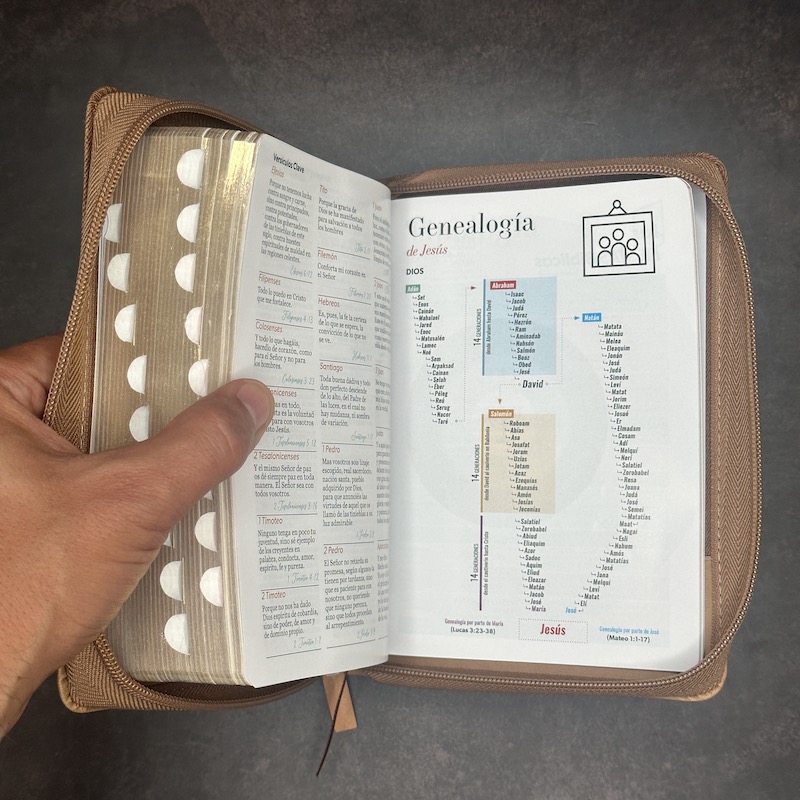 Versículos Clave
Efesios
Porque no tenemos lucha
contra sangre y carne,
sino contra principados,
contra potestades,
contra los gobernadores
de las tinieblas de este
siglo, contra huestes
espirituales de maldad en
las regiones celestes.
Filipenses
Todo lo puedo en Cristo
que me fortalece.
Filipenses 4:13
Colosenses
Y todo lo que hagáis,
hacedlo de corazón, como
para el Señor y no para
los hombres.
Colosenses 3:23
2 Tesalonicenses
Y el mismo Señor de paz
os dé siempre paz en toda
manera. El Señor sea con
todos vosotros.
2 Tesalonicenses 3:16
1 Timoteo
Ninguno tenga en poco tu
juventud, sino sé ejemplo
de los creyentes en
palabra, conducta, amor,
espíritu, fe y pureza.
1 Timoteo 4:12
2 Timoteo
Porque no nos ha dado
Dios espíritu de cobardía,
sino de poder, de amor y
de dominio propio.
2 Timoteo 1:7
Tito
Porque la gracia de
Dios se ha manifestado
para salvación a todos
los hombres.
Filemón
Conforta mi corazón en
el Señor
Hebreos
Es, pues, la fe la certeza
de lo que se espera, la
convicción de lo que no
se ve.
Santiago
Toda buena dádiva y todo
don perfecto desciende
de lo alto, del Padre de
las luces, en el cual no
hay mudanza, ni sombra
de variación.
1 Pedro
Mas vosotros sois linaje
escogido, real sacerdocio,
nación santa, pueblo
adquirido por Dios,
para que anunciéis las
virtudes de aquel que os
llamó de las tinieblas a su
luz admirable
2 Pedro
El Señor no retarda su
promesa, según algunos la
tienen por tardanza, sino
que es paciente para con
nosotros, no queriendo
que ninguno perezca,
sino que todos procedan
al arrepentimiento.
Genealogía
de Jesús
DIOS
Adán
Set
Enos
Cainán
Mahalael
Jared
Enoc
Matusalén
Lamec
Noé
Sem
Arpaksad
Cainan
Selah
Eber
Péleg
Reú
Serug
Nacor
Taré
14 GENERACIONES
desde Abraham hasta David
Abraham
Isaac
Jacob
Judá
Pérez
Hezrón
Ram
Aminadab
Nahsón
Salmón
Booz
Obed
José
David
14 GENERACIONES
desde David al cautiverio en Babilonia
Salomón
Roboam
Abías
Asa
Josafat
Joram
Uzías
Jotam
Acaz
Ezequías
Manasés
Amón
Josías
Jeconías
14 GENERACIONES
desde el cautiverio hasta Cristo
Salatiel
Zorobabel
Abiud
Eliaquim
Azor
Sadoc
Aquim
Eliud
Eleazar
Matán
Jacob
José
María
Natán
Matata
Mainán
Melea
Eleaquim
Jonán
José
Judá
Simeón
Leví
Matat
Jorim
Eliezer
Josué
Er
Elmadam
Cosam
Adi
Melquí
Neri
Salatiel
Zorobabel
Resa
Joana
Judá
José
Semei
Matatías
Maat
Nagai
Esli
Nahum
Amós
Matatías
José
Jana
Melqui
Leví
Matat
Elí
José
Genealogía por parte de María
(Lucas 3:23-38)
Jesús
Genealogía por parte de José
(Mateo 1:1-17)